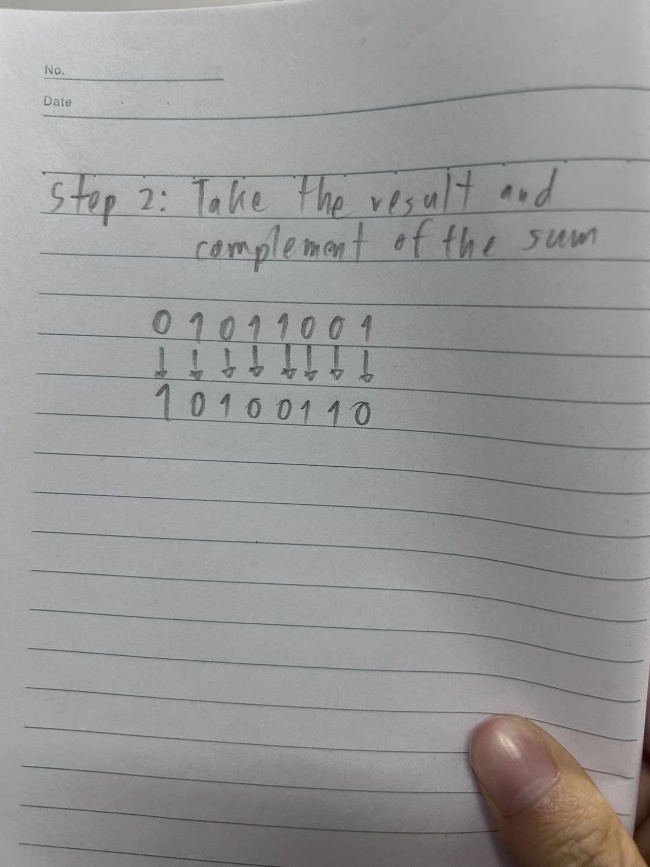 No.
Date
Step 2: Take the result and
complement of the sum
0 1 0 1 1 0 0 1
↓ ↓ ↓ ↓ ↓ ↓ ↓ ↓
1 0 1 0 0 1 1 0